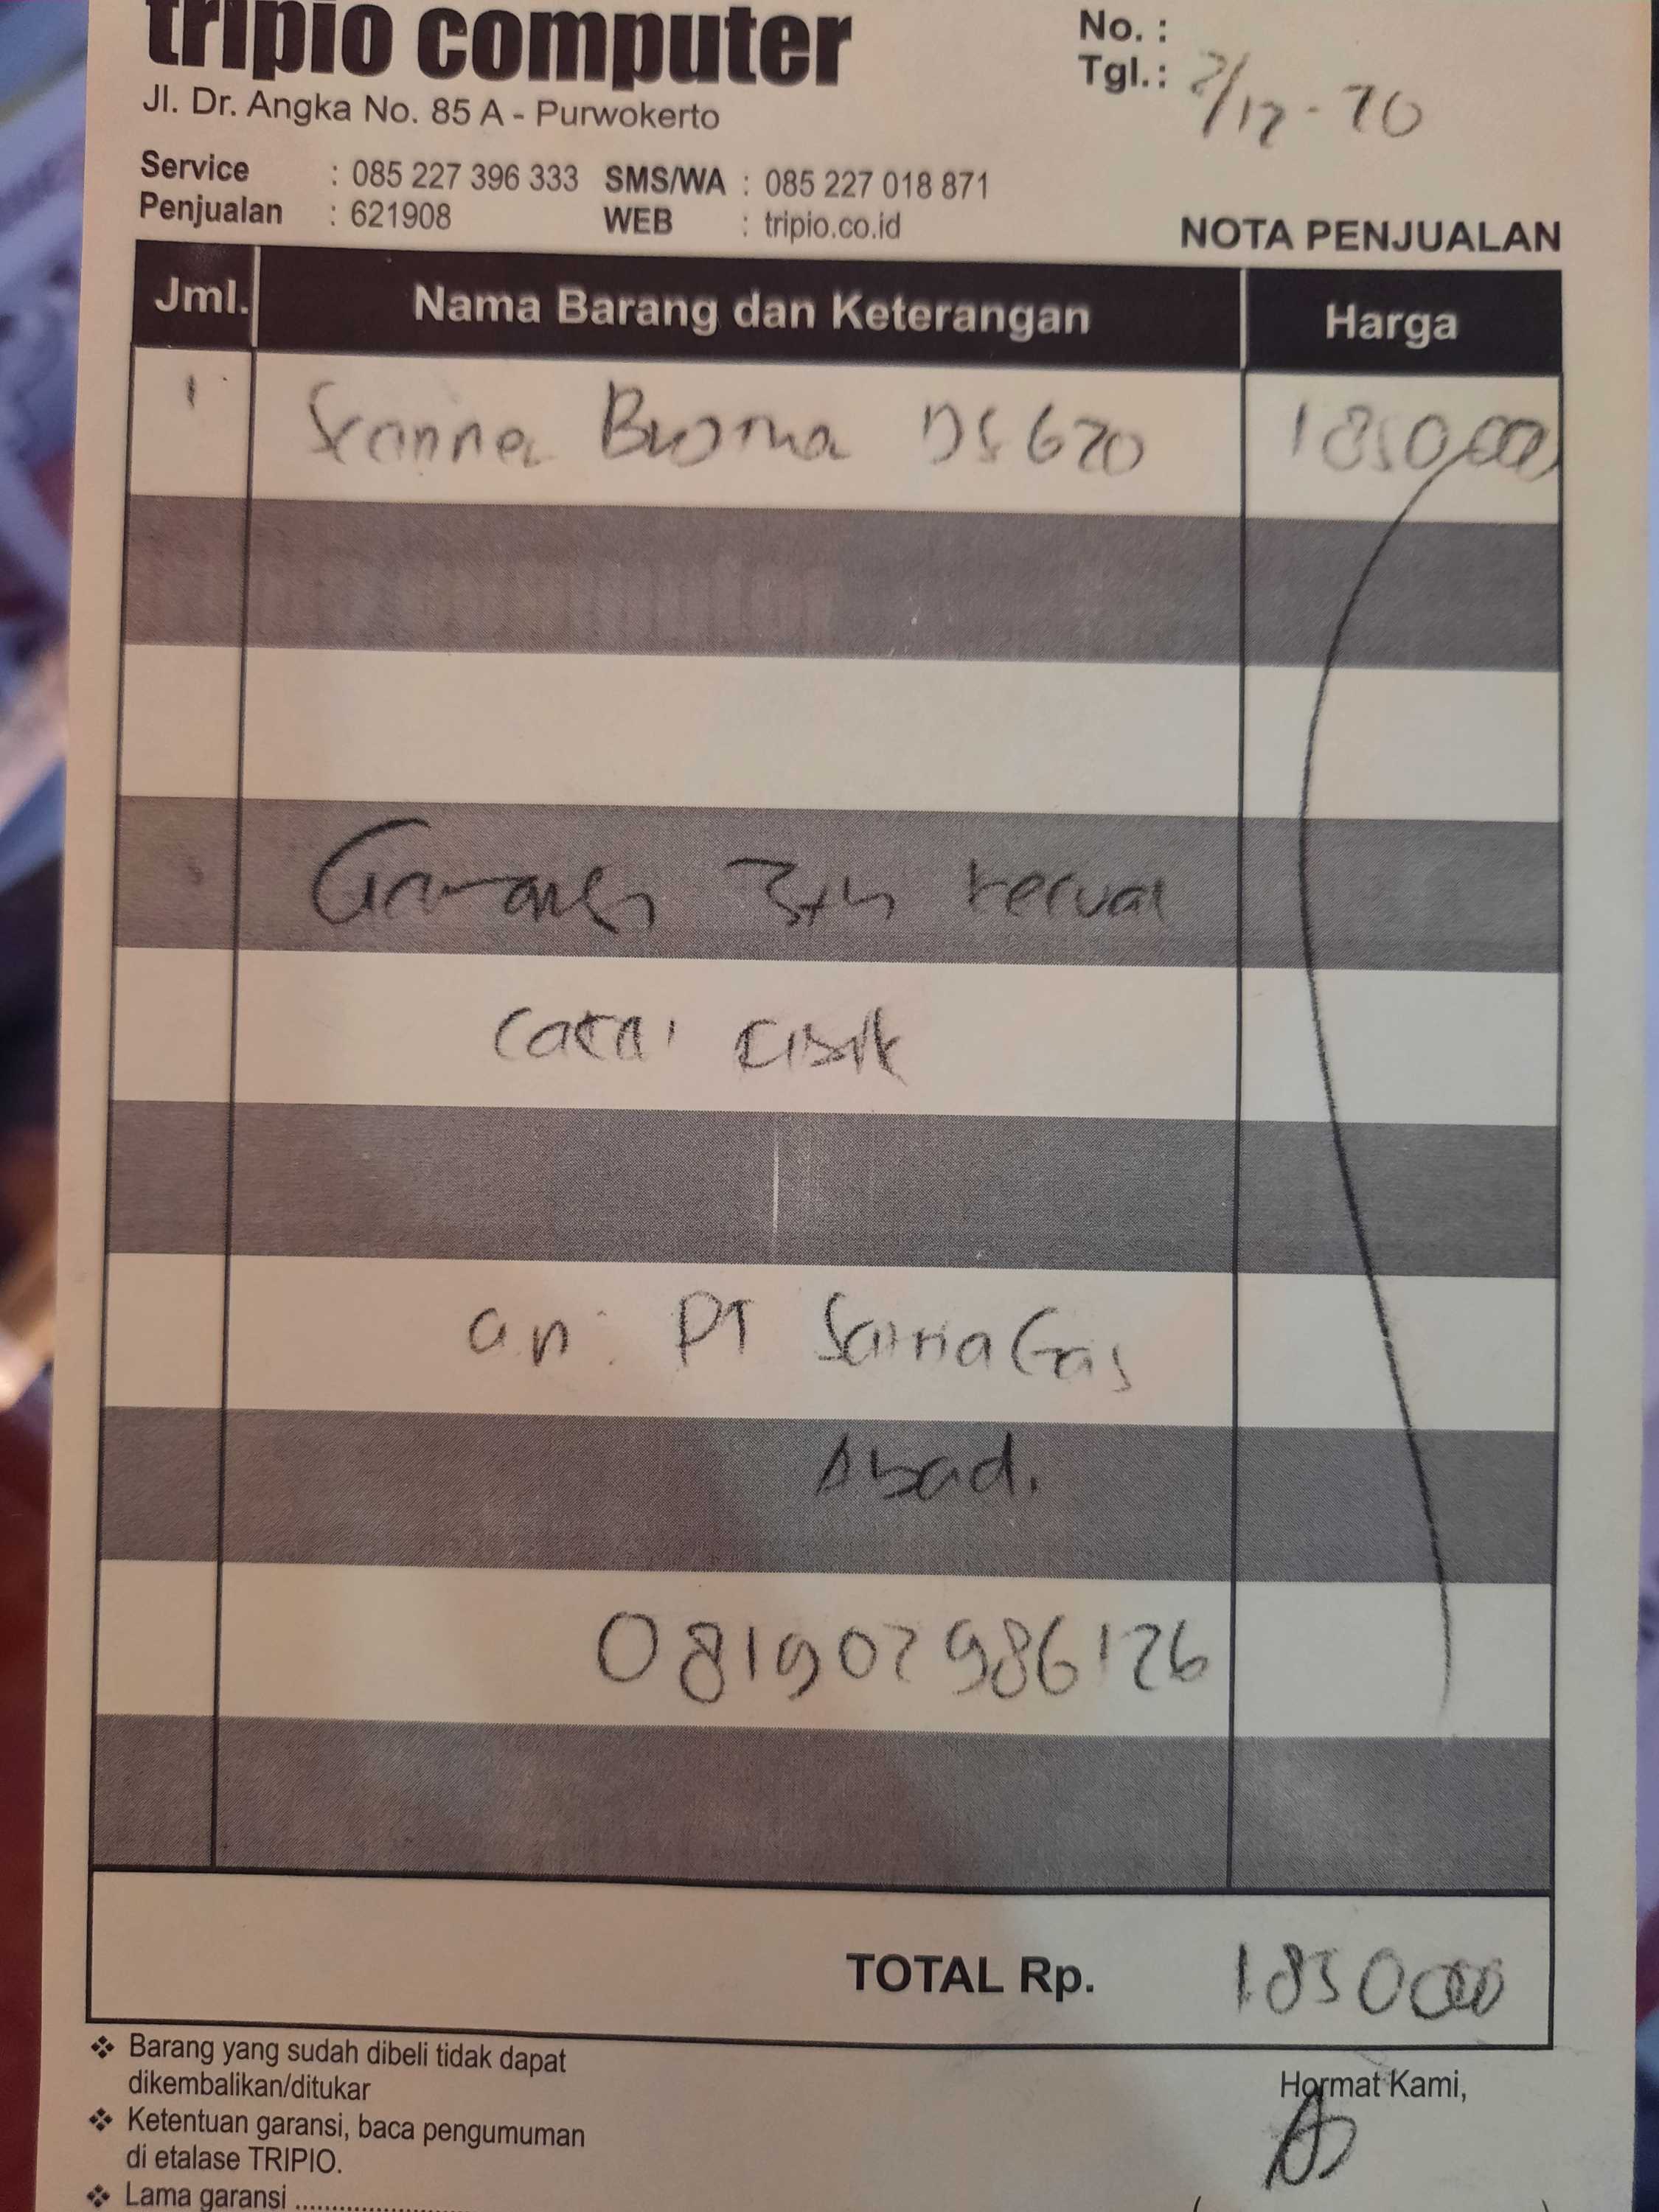 tripio computer
Jl. Dr. Angka No. 85 A - Purwokerto
No. :
Tgl.: 2/12-20
Service : 085 227 396 333 SMS/WA : 085 227 018 871
Penjualan : 621908 WEB : tripio.co.id
NOTA PENJUALAN
Jml. Nama Barang dan Keterangan Harga
1 Scanner DS 620 1850000
Garansi 3th kecuali
cacat fisik
an: PT Satria Gas
Abad.
081902986126
TOTAL Rp. 1850000
❖ Barang yang sudah dibeli tidak dapat
dikembalikan/ditukar
❖ Ketentuan garansi, baca pengumuman
di etalase TRIPIO.
❖ Lama garansi ........................
Hormat Kami,